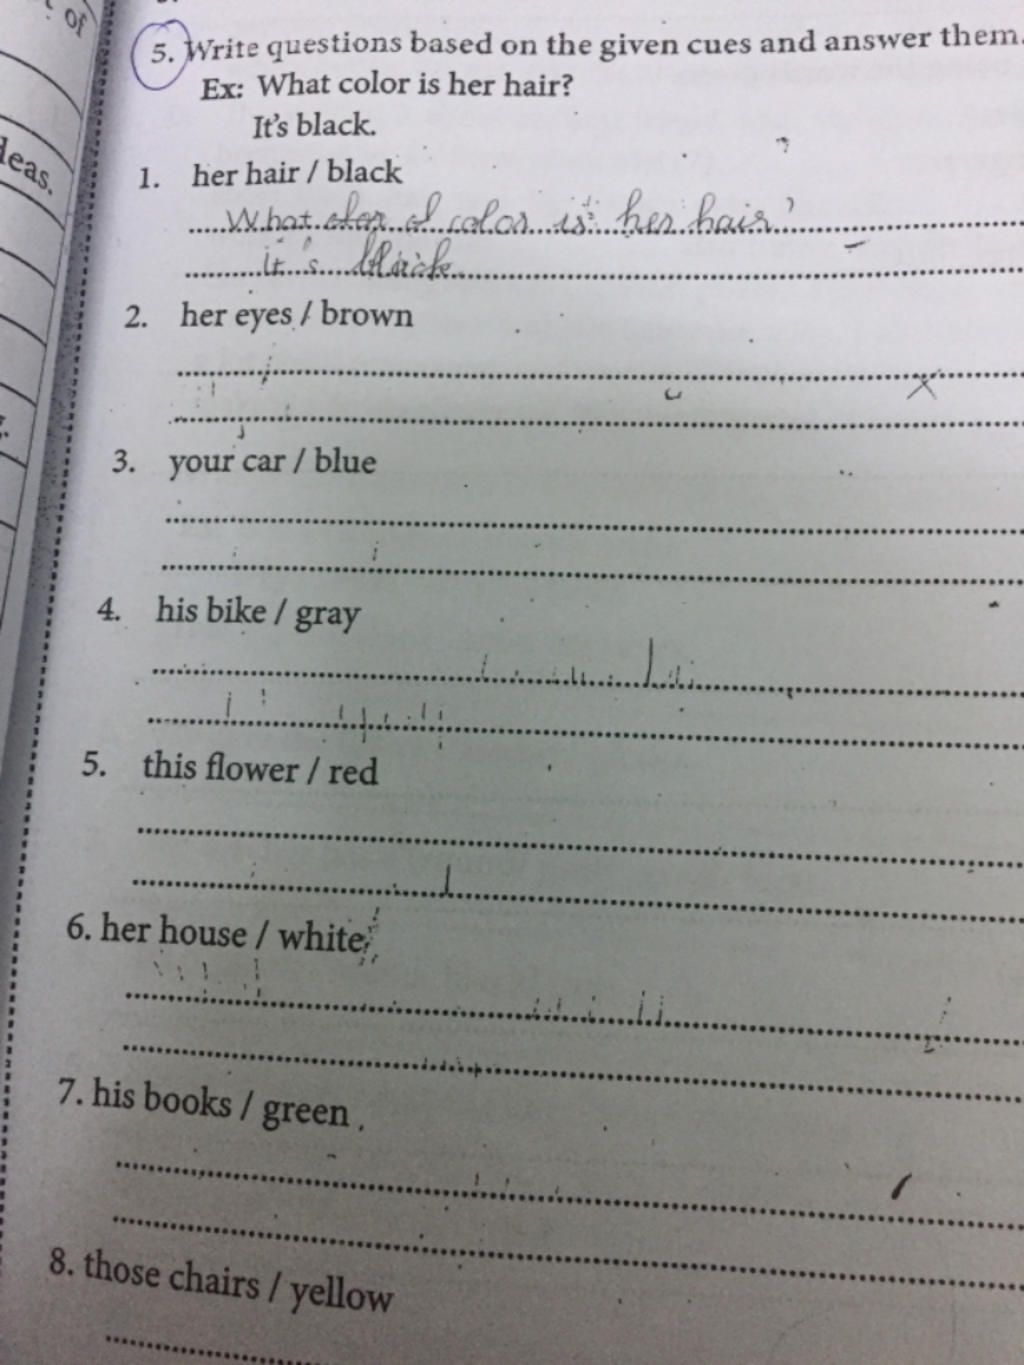 of
deas.
5. Write questions based on the given cues and answer them.
Ex: What color is her hair?
It's black.
1. her hair / black
What color is her hair?
it's black
2. her eyes / brown
3. your car / blue
4. his bike / gray
5. this flower / red
6. her house / white
7. his books / green
8. those chairs / yellow